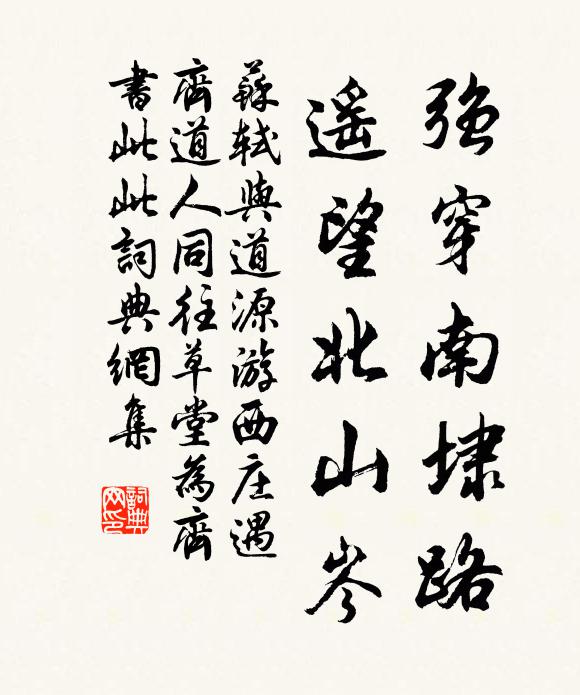 強穿南埭路
遥望北山岑
蘇軾與道源游西庄遇
齊道人同往草堂為齊
書此此詞典網集
詞典
网印